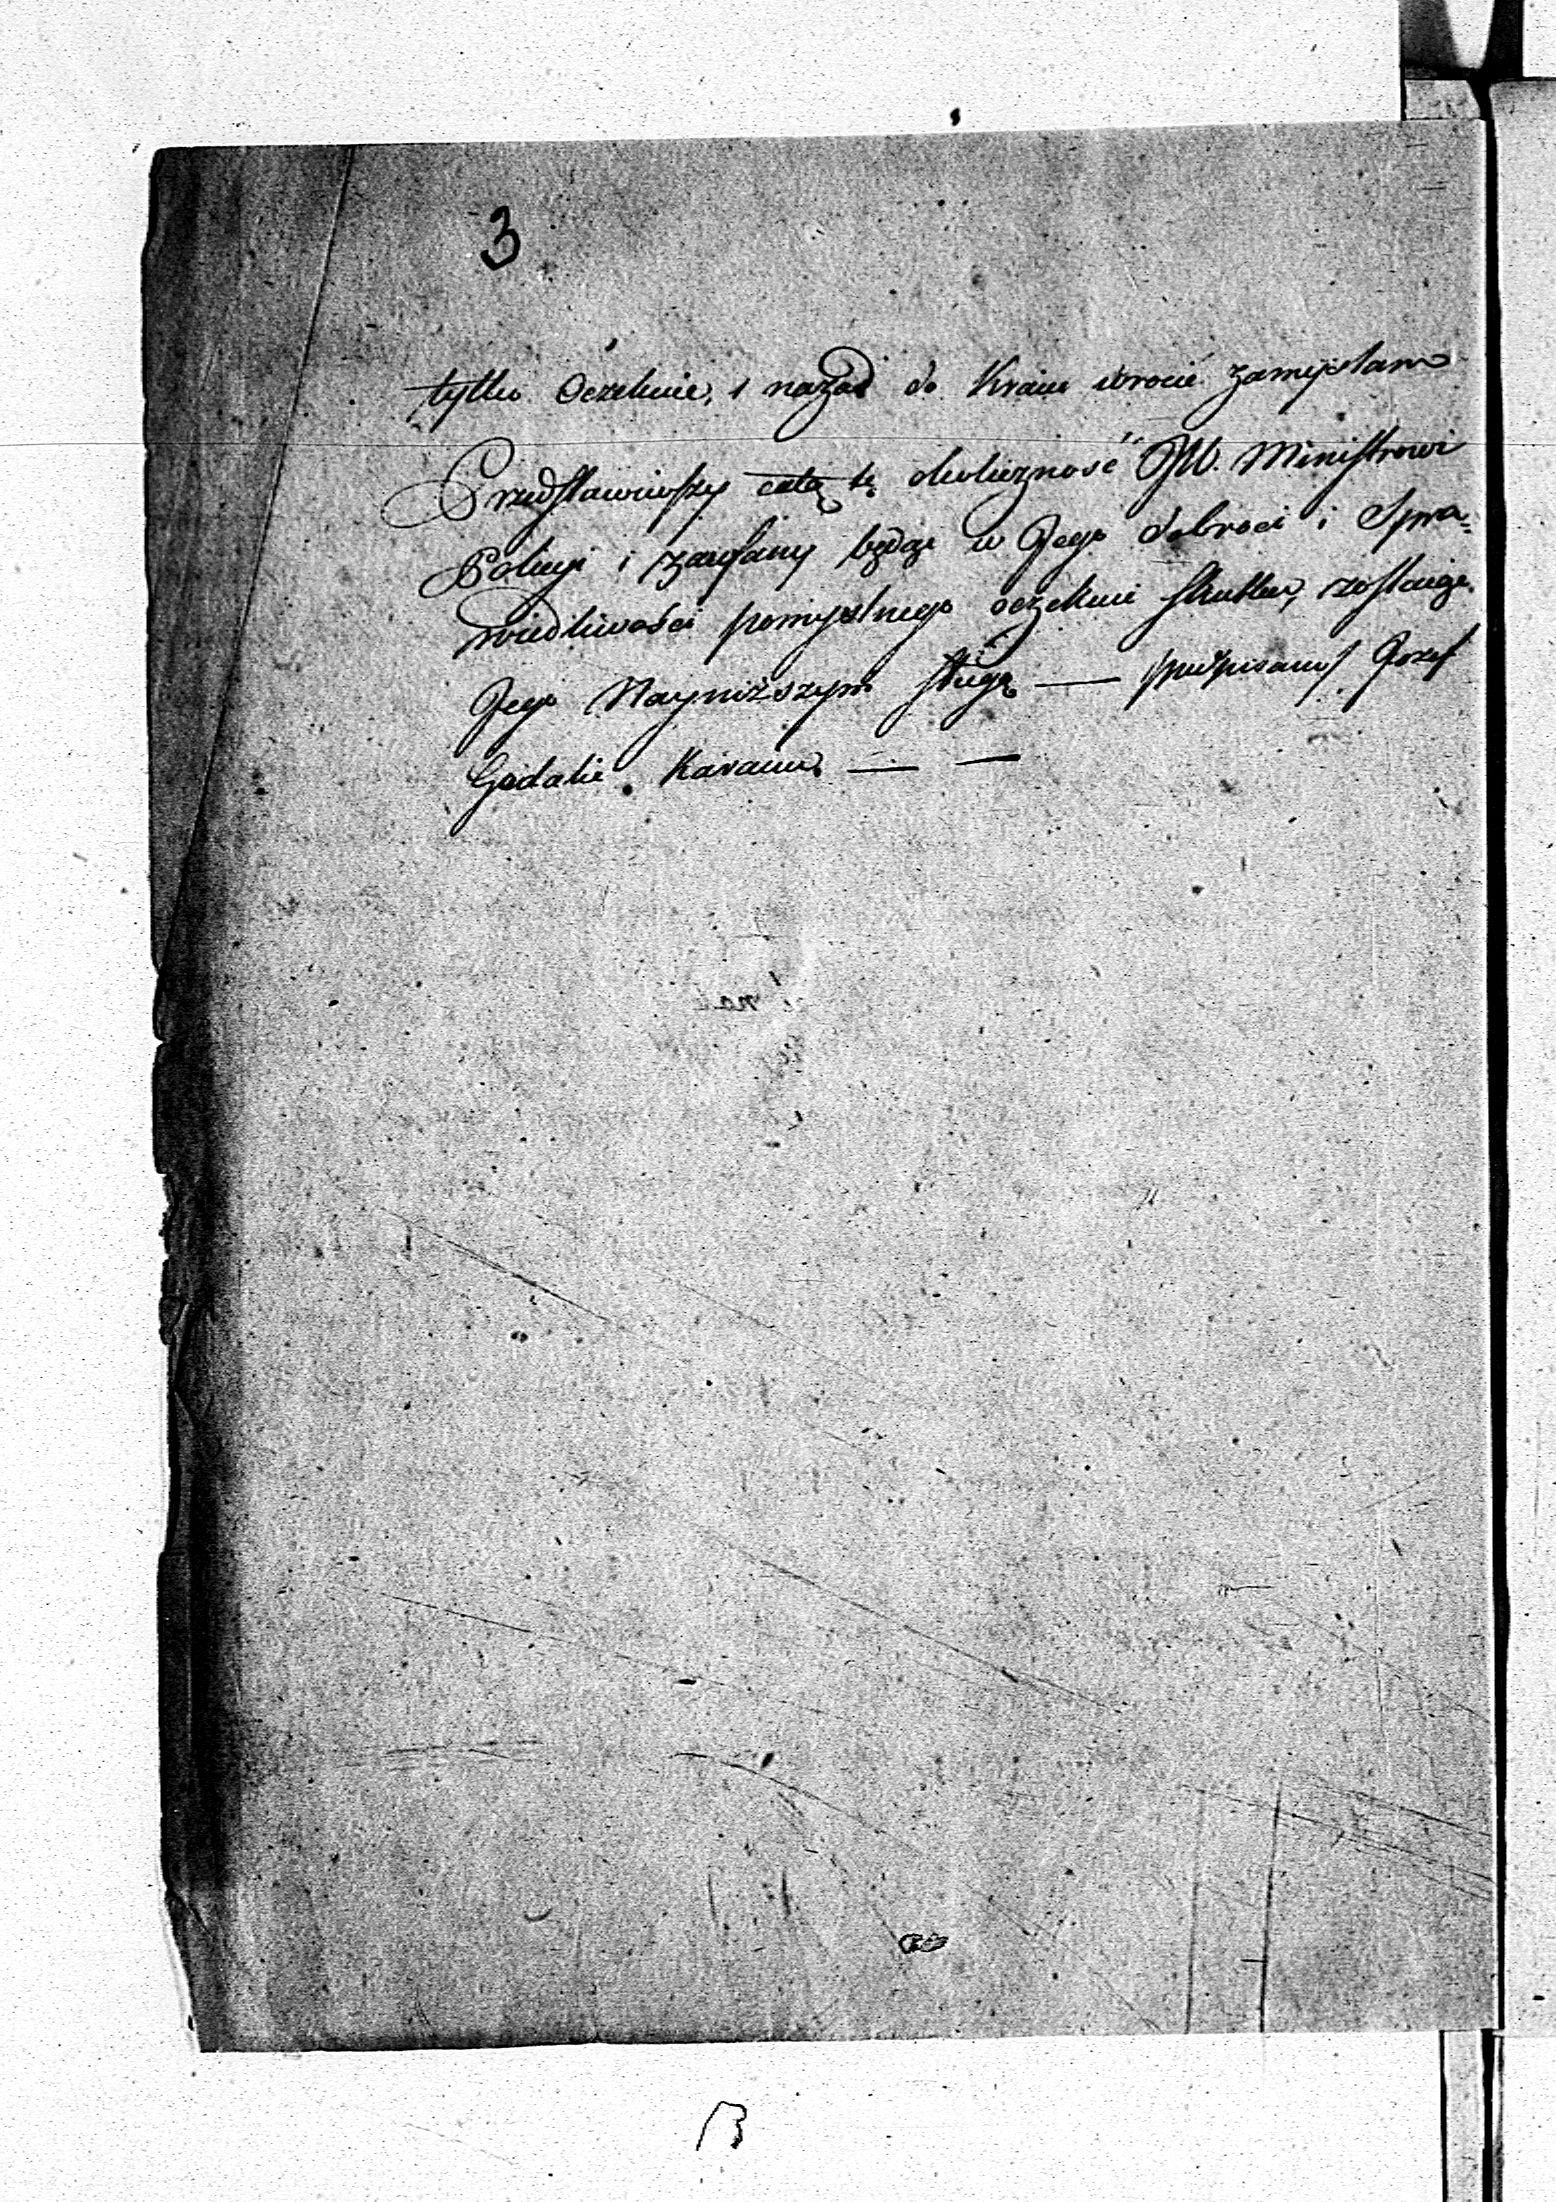 3
tylko Oczekuie, i nazad do Kraiu wrocić zamyslam
Przedstawiwszy całą tę okoliczność JW. Ministrowi
Policyi i zaufany będąc w Jego dobroci i Spra=
wiedliwości pomyslnego oczekuie skutku, zostaiąc
Jego Nayniższym sługą — /podpisany/ Jozef
Gedalie Karaim — —
13